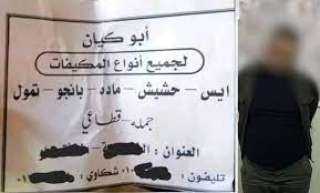 أبو كيان
لجميع أنواع المكيفات
ايس - حشيش - مادد - بانجو - تمول
جمله - قطاعي
العنوان :
تليفون : ٠١ شكاوي / ٠١٠